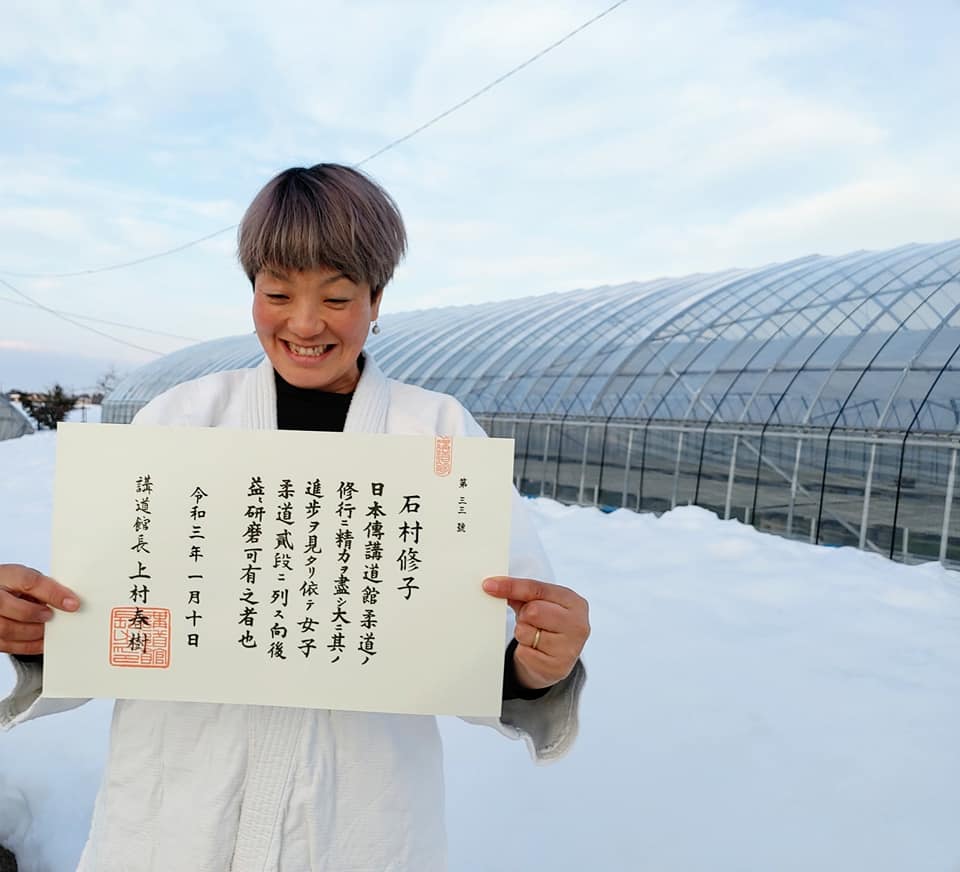 第三三號
石村修子
日本傳講道館柔道ノ
修行ニ精力ヲ盡シ大ニ其ノ
進歩ヲ見タリ依テ女子
柔道貳段ニ列ス向後
益〻研磨可有之者也
令和三年一月十日
講道館長 上村春樹